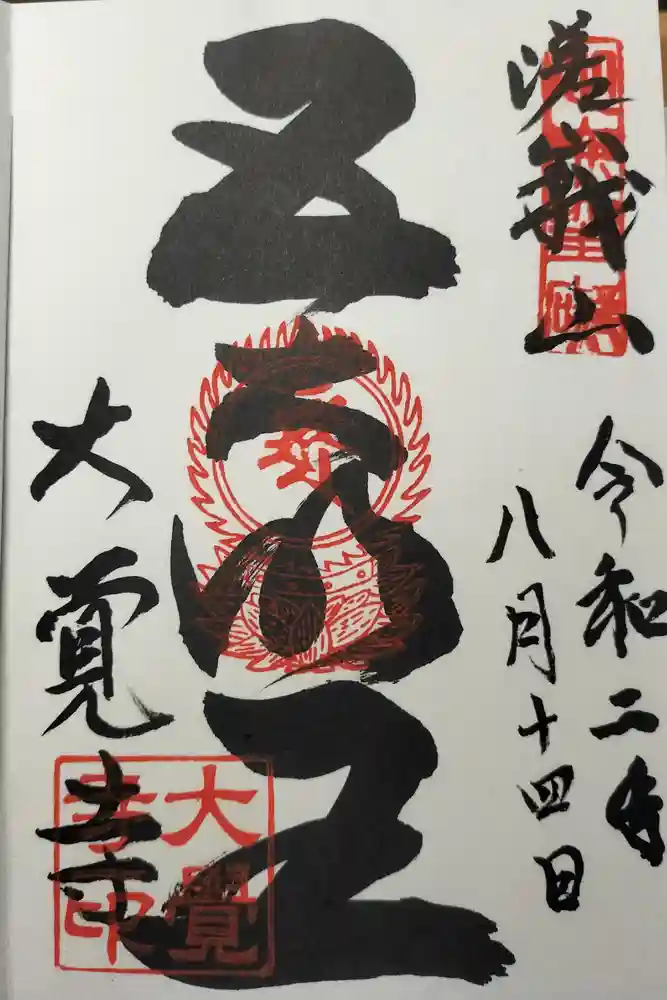 嵯峨山
令和二年
八月十四日
五大明王
大覚寺
大覺寺印